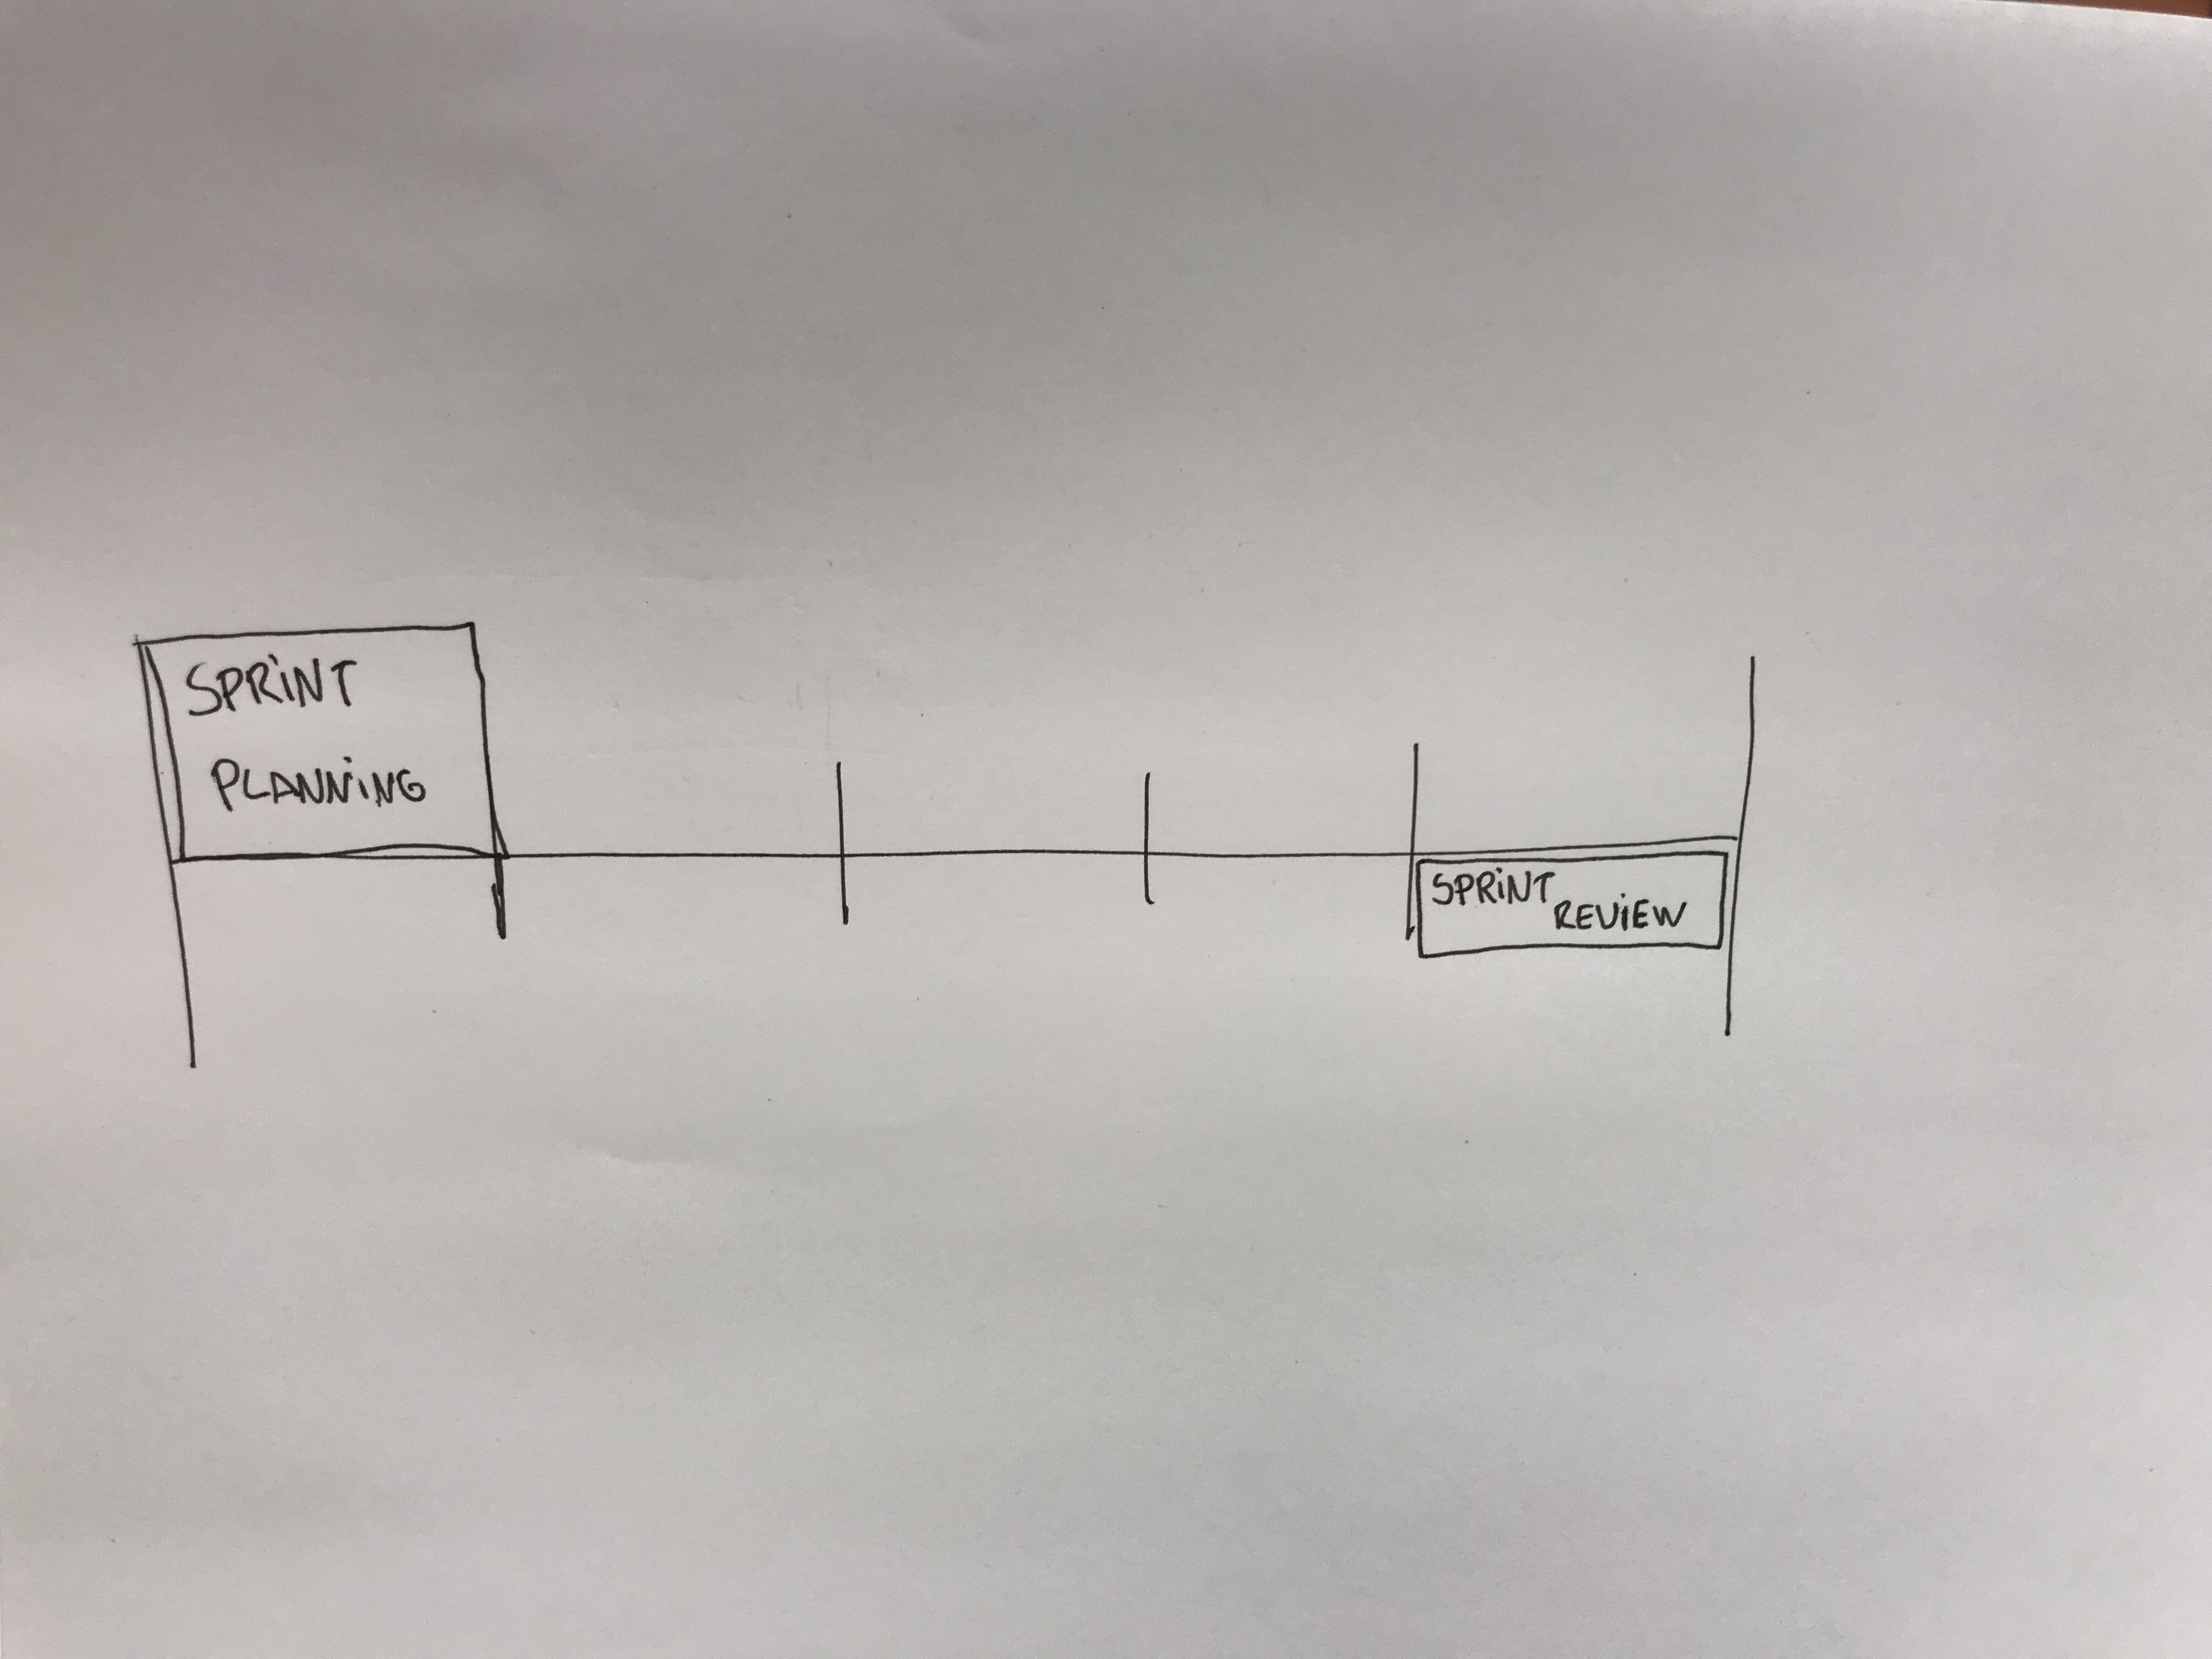 SPRINT
PLANNING
SPRINT
REVIEW